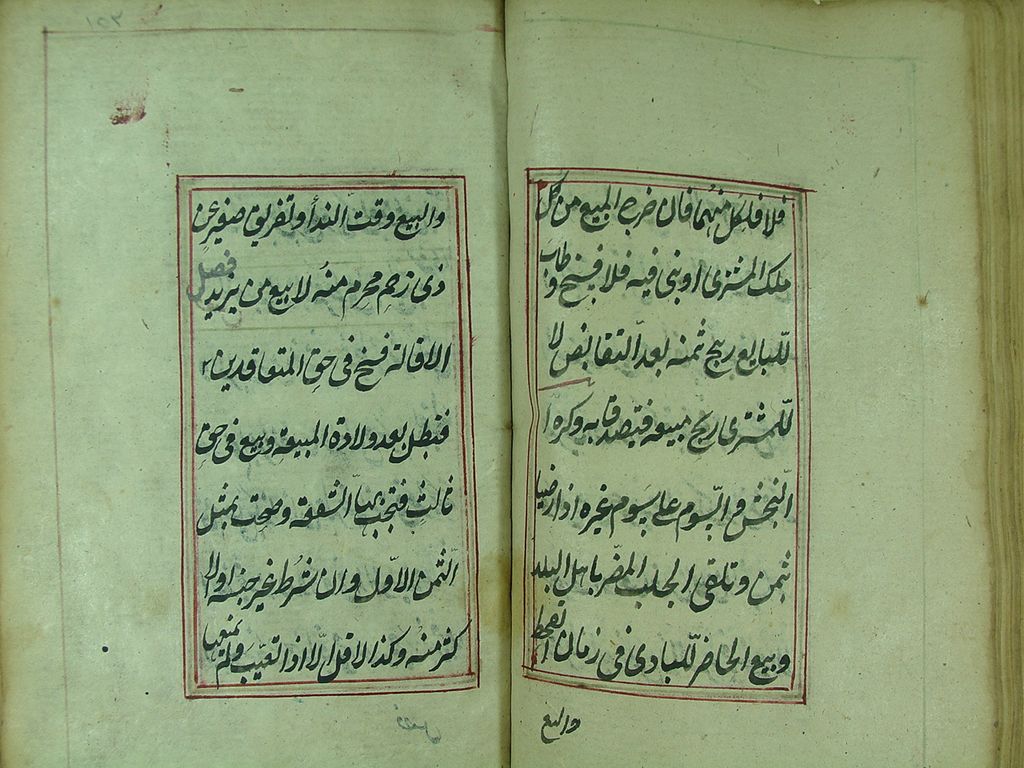 فلا فلكل منهما فان خرج المبيع من كل
ملك المشترى او بنى فيه فلا فسخ وطاب
للبايع ربح ثمنه بعد التقابض لا
للمشترى ربح مبيعه فيتصدق به وكره ا
النجش و السوم على سوم غيره اذا رضيا
بثمن وتلقى الجلب المضر باهل البلد
وبيع الحاضر للبادى فى زمان القحط
والبيع
والبيع وقت الندأ وتفريق صغير عن
ذى رحم محرم منه لا بيع من يزيد فصل
الاقالة فسخ فى حق المتعاقدين
فتبطل بعد ولادة المبيعة وبيع فى حق
ثالث فتجب بها الشفعة وصحت بمثل
الثمن الاول وان شرط غير جنسه او ا
كثر منه وكذا الاقل الا اذا تعيب ولم يمنعها